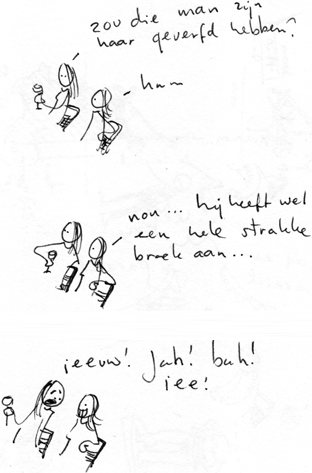 zou die man zijn
haar geverfd hebben?
hmm
nou... hij heeft wel
een hele strakke
broek aan...
ieeuw! jah! bah!
iee!